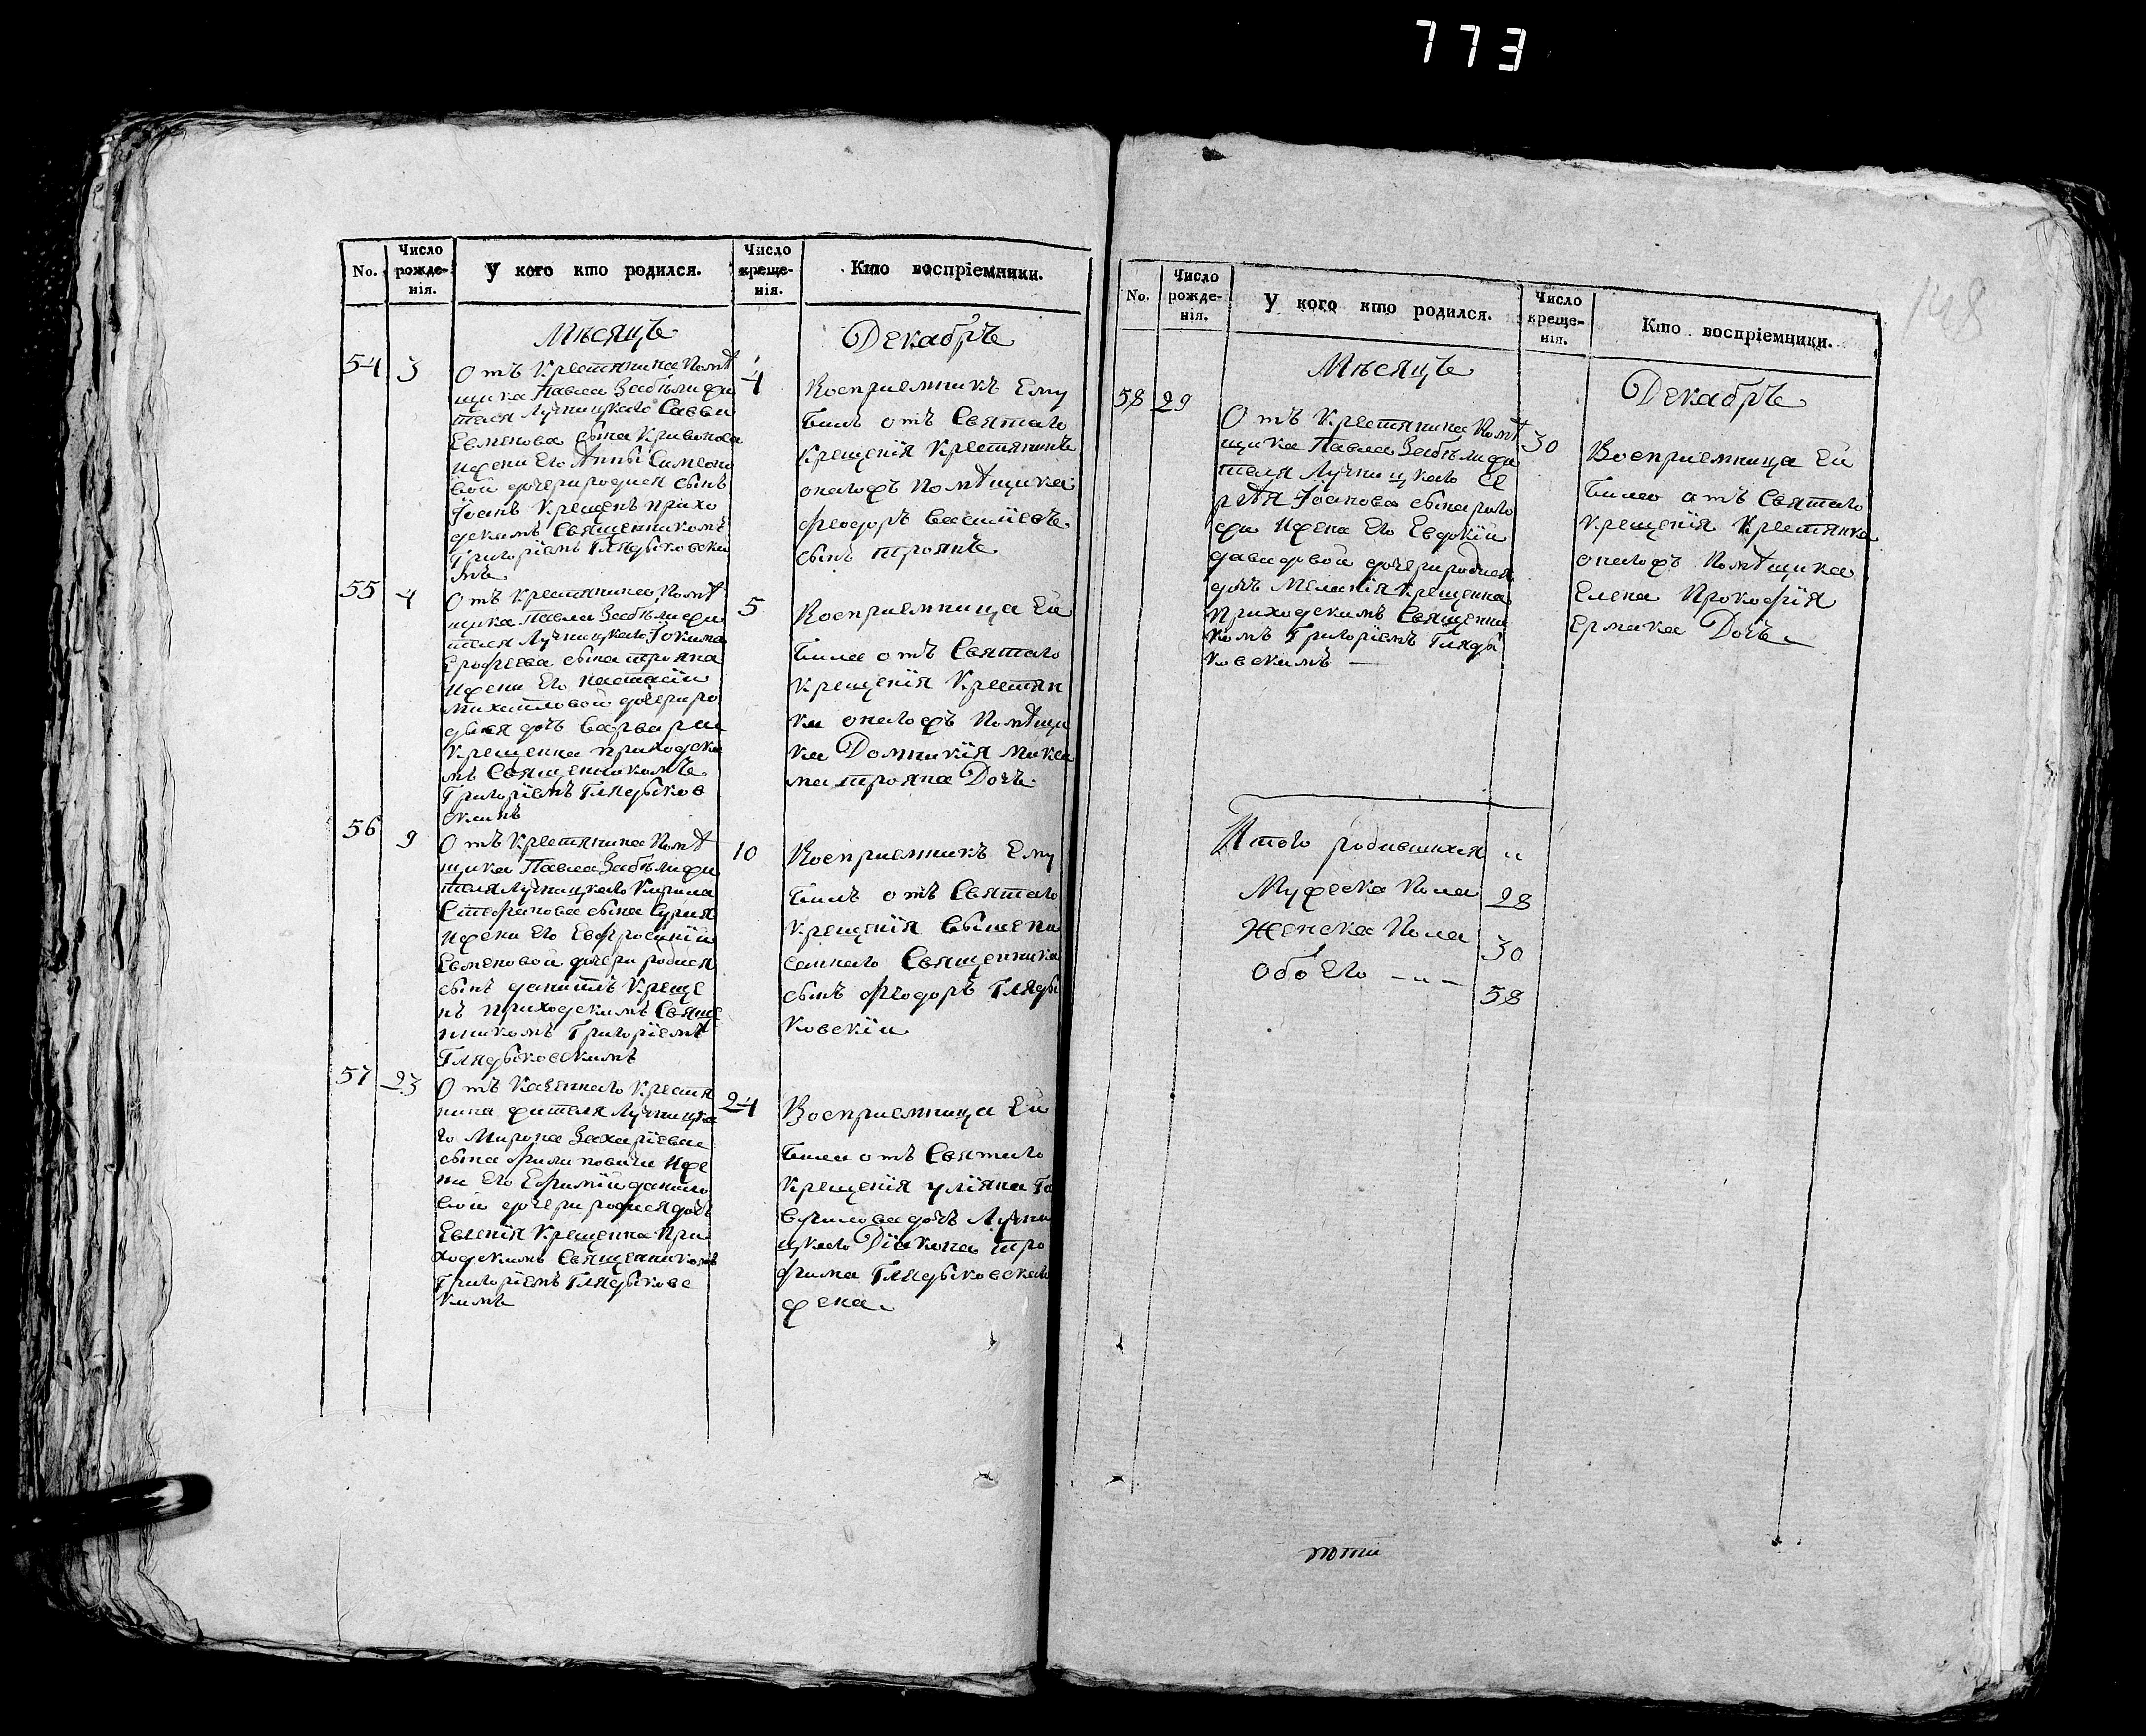 773
No.
Число рожде- нія.
У кого кто родился.
Число креще- нія.
Кто воспріемники.
Мѣсяцъ
Декабръ
54 3
Отъ Крестянина Помѣ
щика Павла Забѣлы жи
теля Лучницкаго Саввы
Евменова сына Кривоноса
ижены Его Анны Симеоно
вой дочери родися сынъ
Іоанъ Крещенъ прихо
дскимъ Священникомъ
Григоріемъ Глядыковски
мъ
4
Восприемникъ Ему
былъ отъ Святаго
крещенія Крестянинъ
оналожъ Помѣщика
Феодоръ Василіевъ
сынъ Троянъ
55 4
Отъ Крестянина Помѣ
щика Павла Забѣлы жи
теля Лучницкаго Іокима
Ерофеева сына трояна
ижены Его Настасіи
Михаиловой дочери ро
дися дочъ Варвара
Крещенна приходски
мъ Священникомъ
Григоріемъ Глядыков
скимъ
5
Восприемница Ей
была отъ Святаго
Крещенія Крестян
ка оналожъ Помѣщи
ка Домникія
трояна Дочъ
56 9
Отъ Крестянина Помѣ
щика Павла Забѣлы жи
теля Лучницкаго Кирила
Стефанова сына
ижены Его Евфросиніи
Евменовой дочери родися
сынъ Даниилъ Креще
нъ приходскимъ Свяще
нникомъ Григоріемъ
Глядыковскимъ
10
Восприемникъ Ему
былъ отъ Святаго
крещенія вышепи
саннаго Священника
сынъ Феодоръ Гляды
ковскій
57 23
Отъ Казеннаго Крестя
нина жителя Лучницка
го Мирона Захаріева
сына Филиповича иже
ны Его Ефиміи Данило
вой дочери родися дочъ
Евгенія Крещенна при
ходскимъ Священникомъ
Григоріемъ Глядыковс
кимъ
24
Восприемница Ей
была отъ Святаго
Крещенія уліяна Га
врилова дочъ Лучни
цкаго Діякона тро
фима Глядыковскаго
жена
148
No.
Число рожде- нія.
У кого кто родился.
Число креще- нія.
Кто воспріемники.
Мѣсяцъ
Декабръ
58 29
Отъ Крестянина Помѣ
щика Павла Забѣлы жи
теля Лучницкаго Се
ргѣя Іоанова сына
ижена Его Евдокіи
Давидовой дочери родися
дочъ Меланія Крещенна
Приходскимъ Священни
комъ Григоріемъ Гляды
ковскимъ
30
Восприемница Ей
была отъ Святаго
крещенія Крестянка
оналожъ Помѣщика
Елена Прокофія
Ермака Дочъ
Итого родившихся „
Мужеска Пола 28
Женска Пола 30
Обоего — „ — 58